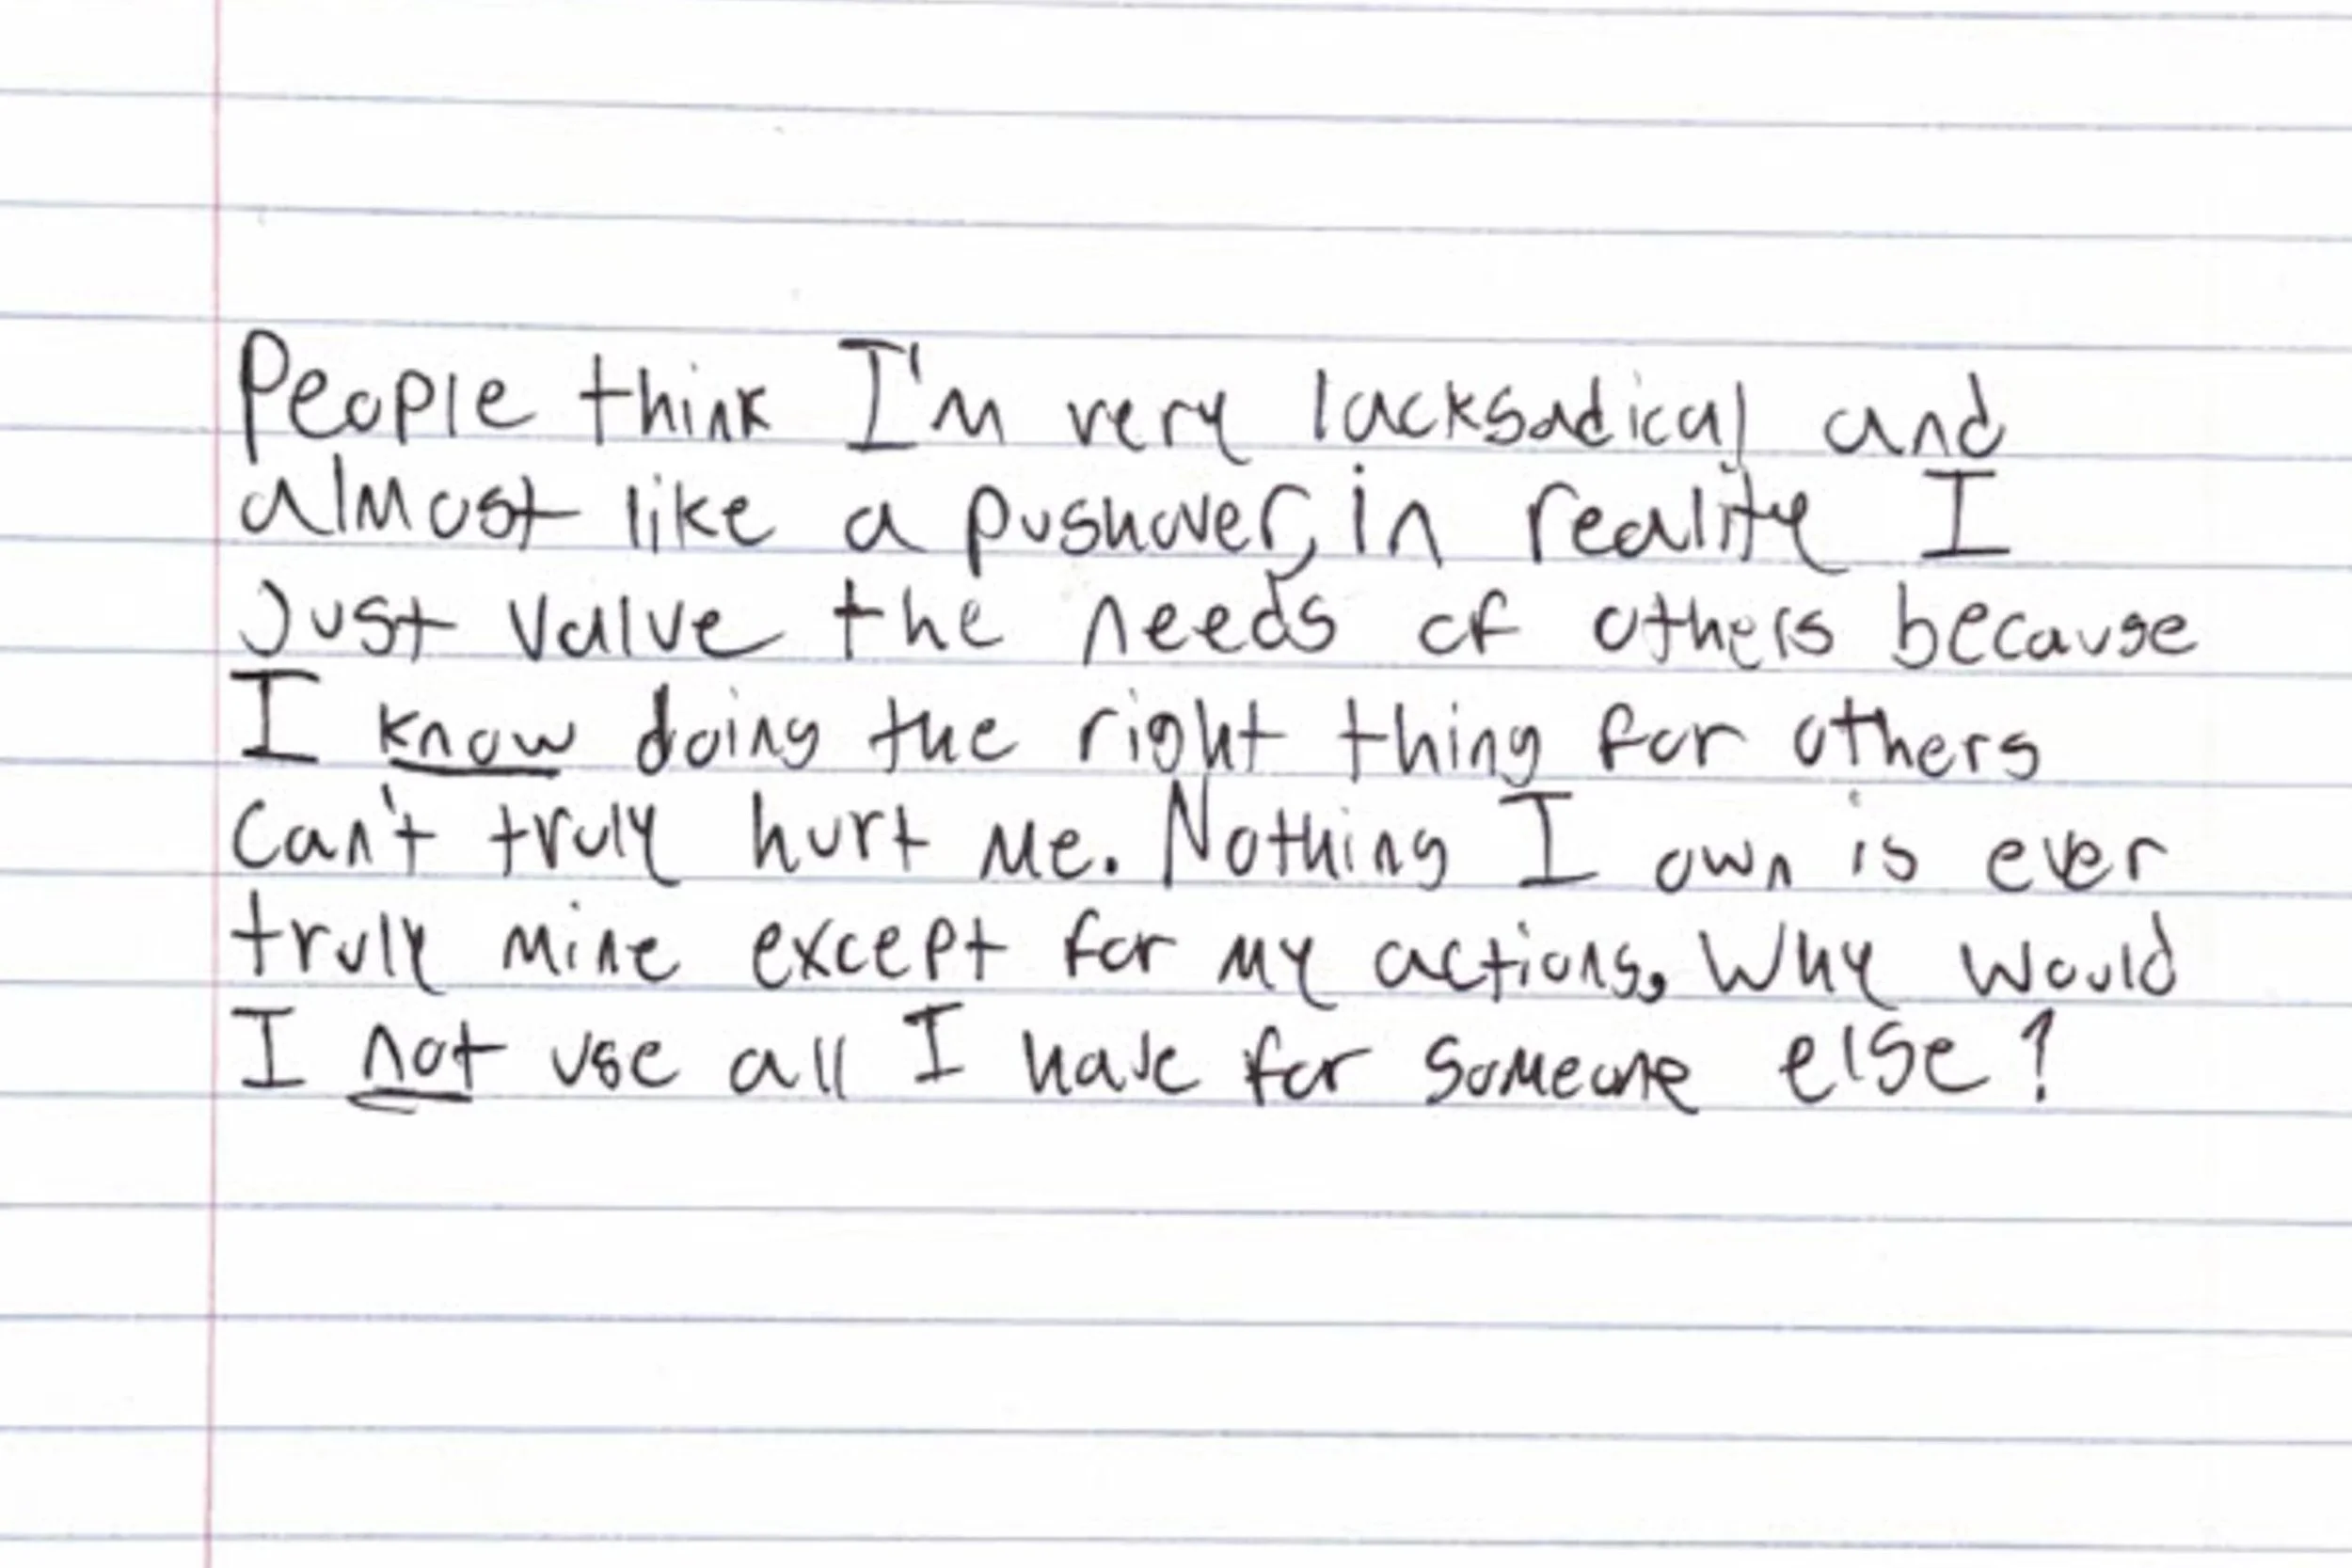 People think I'm very lacksadical and
almost like a pushover, in reality I
Just value the needs of others because
I know doing the right thing for others
Can't truly hurt me. Nothing I own is ever
truly mine except for my actions, Why would
I not use all I have for someone else?